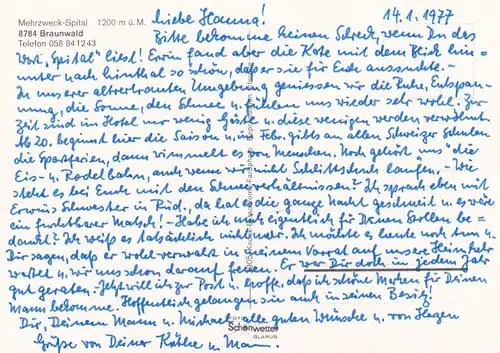 Mehrzweck-Spital 1200 m ü.M.
8784 Braunwald
Telefon 058 84 12 43
14.1.1977
Liebe Hanna!
Bitte bekomme keinen Schreck, wenn Du das
Wort "Spital" liest! Erwin fand aber die Karte mit dem Blick hin=
unter nach Linthal so schön, daß er sie für Euch aussuchte.-
In unserer altvertrauten Umgebung genießen wir die Ruhe, Entspan=
nung, die Sonne, den Schnee u. fühlen uns wieder sehr wohl. Zur
Zeit sind im Hotel nur wenig Gäste u. diese wenigen werden verwöhnt.
Ab 20. beginnt hier die Saison u. im Febr. gibts an allen Schweizer Schulen
die Sportferien, dann wimmelt es von Menschen. Noch gehört uns die
Eis- u. Rodelbahn, auch wenn wir nicht Schlittschuh laufen. - Wie
steht es bei Euch mit den Schneeverhältnissen? Ich sprach eben mit
Erwins Schwester in Ried, da hat es die ganze Nacht geschneit u. es wäre
ein furchtbarer Matsch! - Habe ich mich eigentlich für Deinen Stollen be=
dankt? Ich weiß es tatsächlich nicht mehr. Ich möchte es heute noch tun u.
Dir sagen, daß er wohl-verwahrt in meinem Vorrat auf unsere Heimkehr
wartet u. wir uns schon darauf freuen. Er war Dir doch in jedem Jahr
gut geraten. - Jetzt will ich zur Post u. hoffe, daß ich schöne Marken für Deinen
Mann bekomme. Hoffentlich gelangen sie auch in seinen Besitz!
Dir, Deinem Mann u. Michael alle guten Wünsche u. von Herzen
Grüße von Deiner Käthe u. Mann.
FOTO
Schönwetter
GLARUS